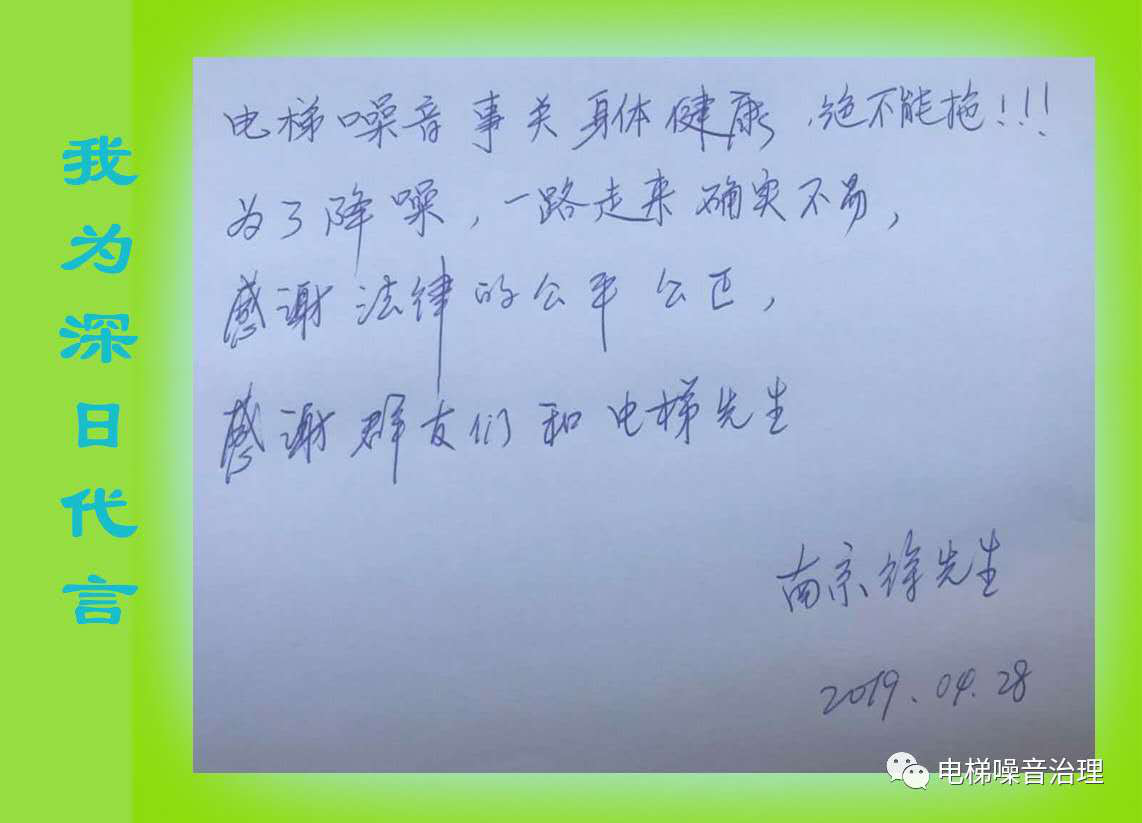 我为深日代言
电梯噪音事关身体健康，绝不能拖！!!
为了降噪，一路走来确实不易，
感谢法律的公平公正，
感谢群友们和电梯先生
南京徐先生
2019.04.28
电梯噪音治理